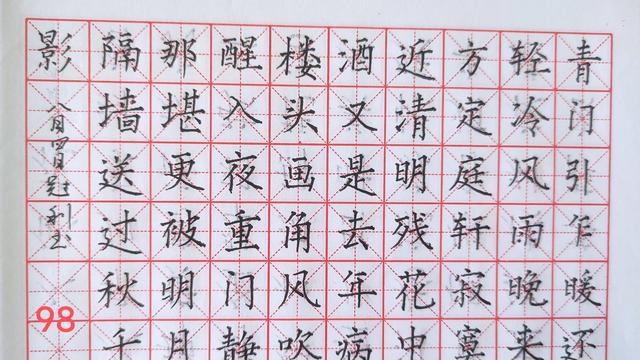 青门引乍暖还
轻冷风雨晚来
方定庭轩寂寞
近清明残花中
酒又是去年病
楼头画角风吹
醒入夜重门静
那堪更被明月
隔墙送过秋千
影
98